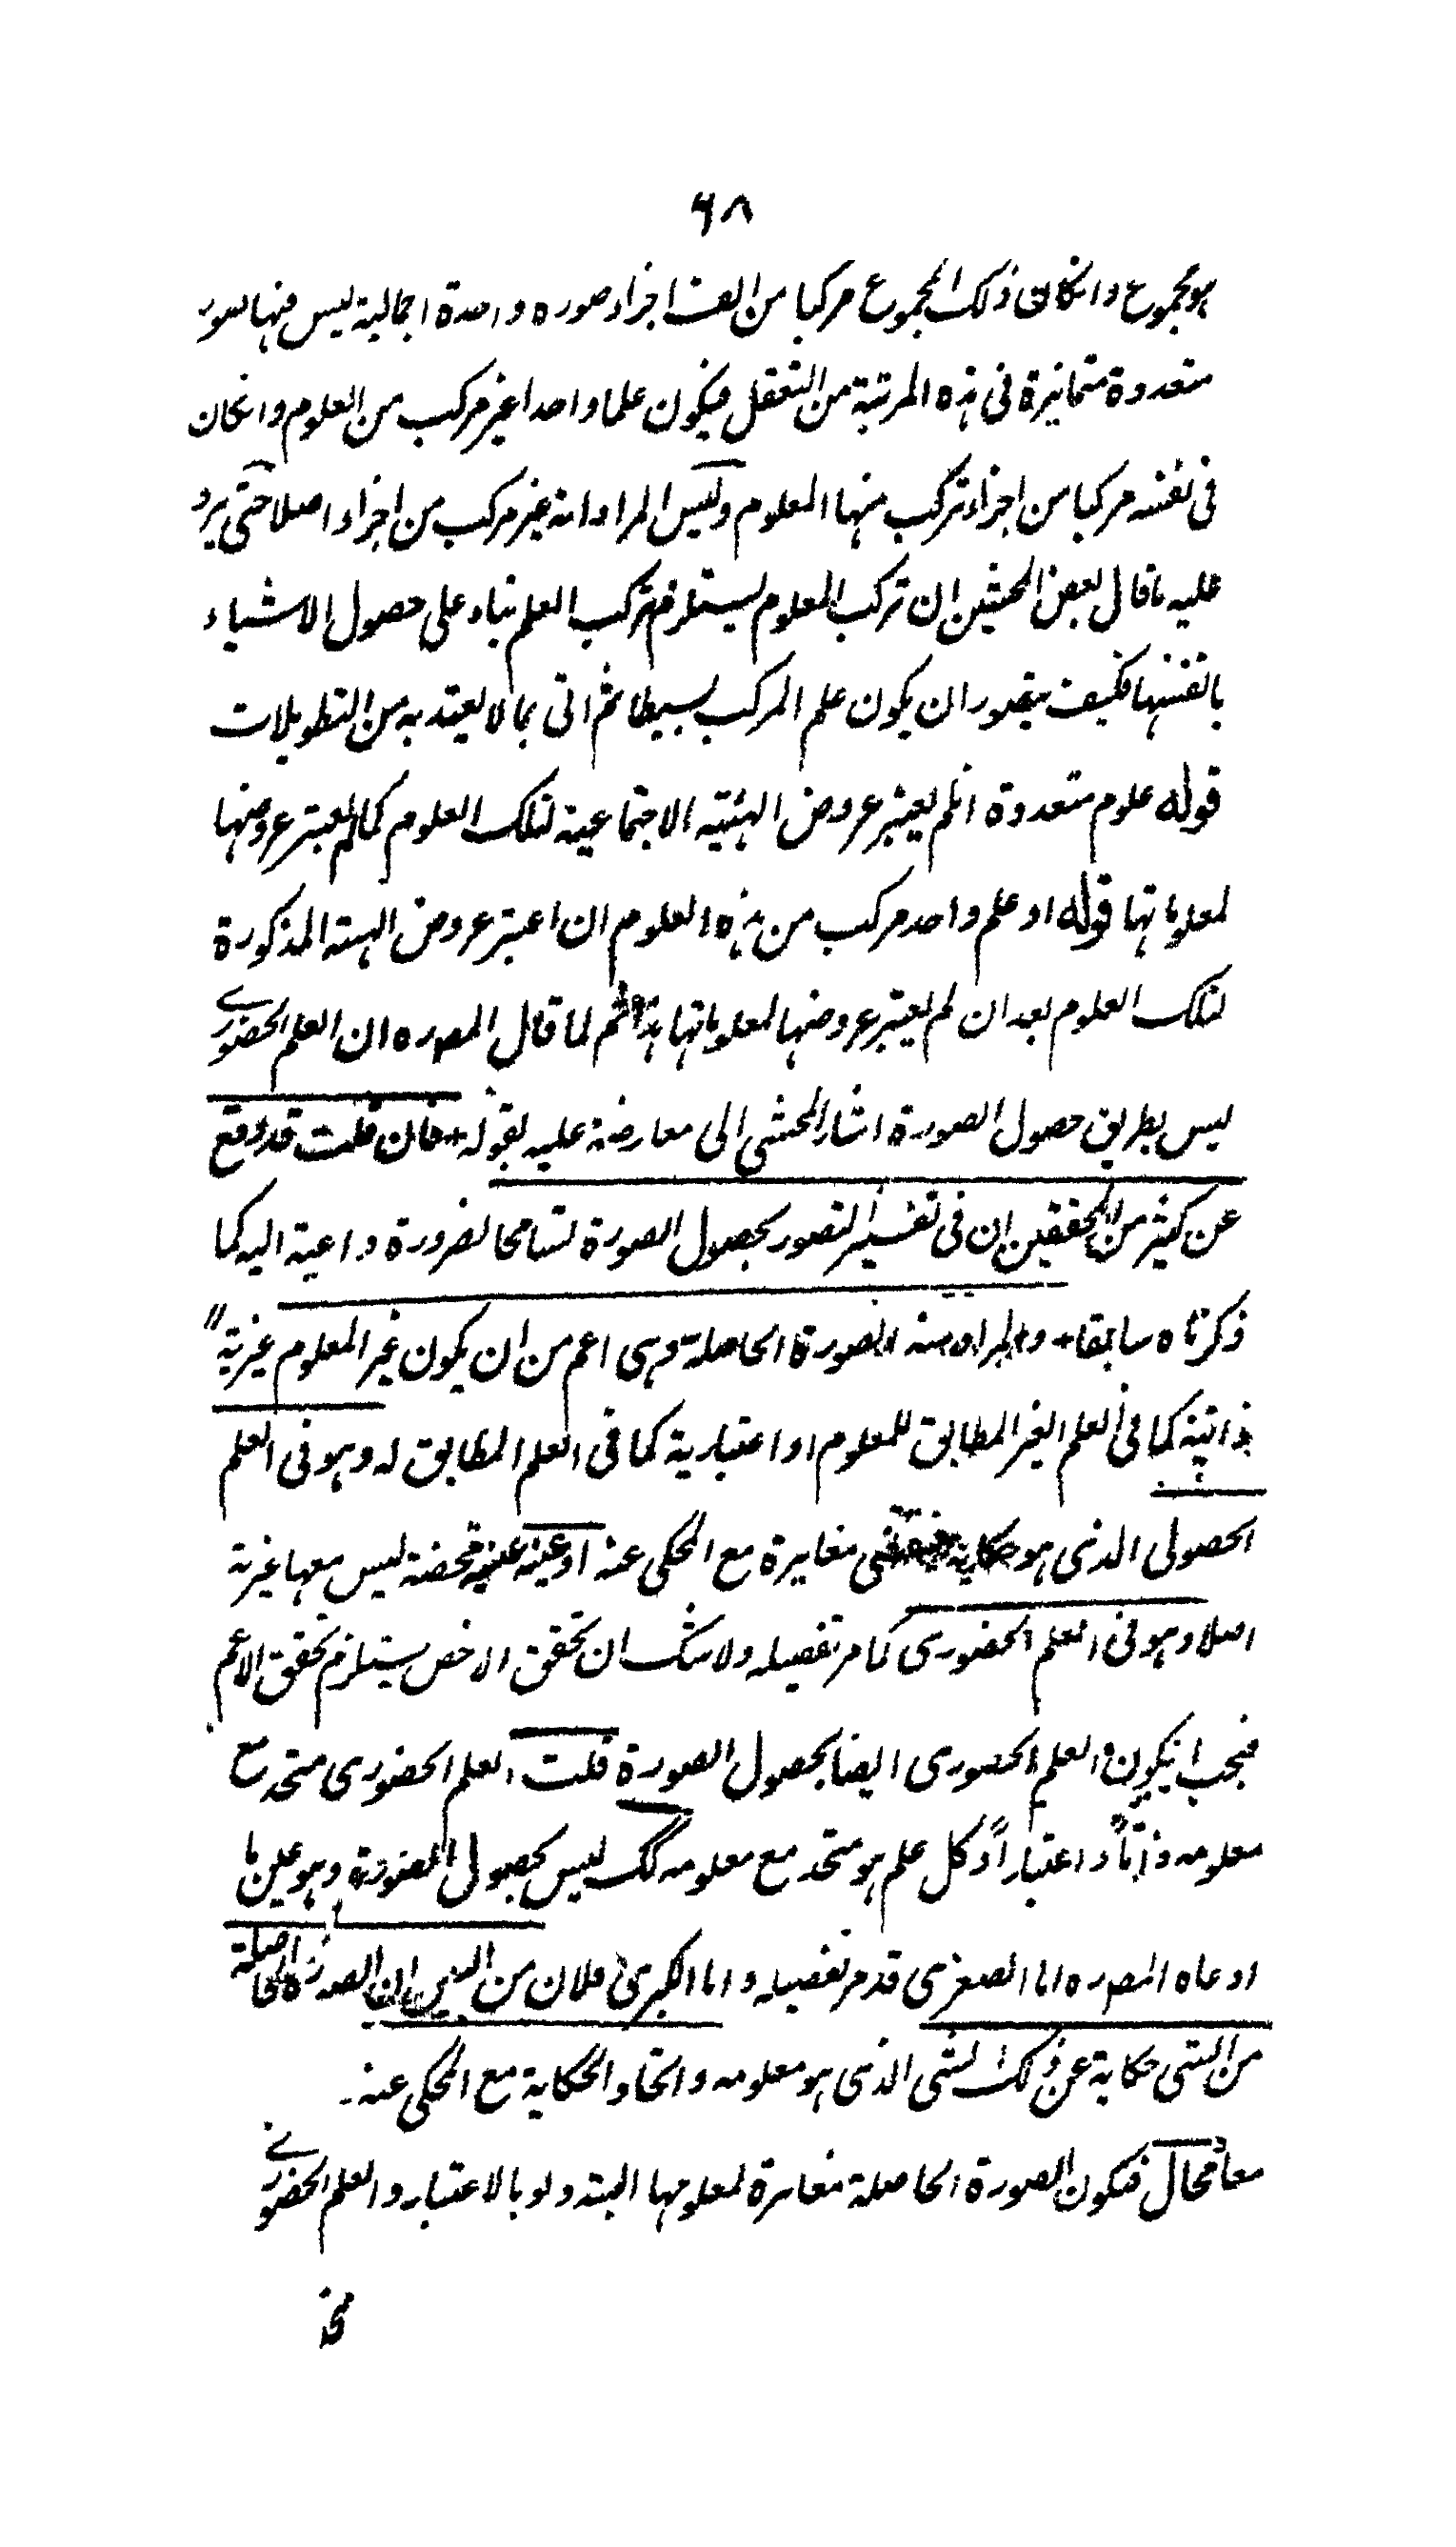 ٦٨
هو مجموع وانكان ذلك المجموع مركبا من الف اجزاء صوره واحدة اجمالية ليس فيها صور
متعددة متمائزة فى هذه المرتبة من التعقل فيكون علما واحدا غير مركب من العلوم وانكان
فى نفسه مركبا من اجزاء تركب منها المعلوم وليس المراد انه غير مركب من اجزاء اصلا حتى يرد
عليه ما قال بعض المحشين ان تركب المعلوم يستلزم تركب العلم بناء على حصول الاشياء
بانفسها فكيف يتصور ان يكون علم المركب بسيطا ثم اتى بما لا يعتد به من التطويلات
قوله علوم متعددة انلم يعتبر عروض الهيئية الاجتماعية لتلك العلوم كما لم يعتبر عروضها
لمعلوماتها قوله او علم واحد مركب من هذه العلوم ان اعتبر عروض الهيئة المذكورة
لتلك العلوم بعد ان لم يعتبر عروضها لمعلوماتها هذا ثم لما قال المصره ان العلم الحضورے
ليس بطريق حصول الصورة اشار المحشى الى معارضة عليه بقوله فان قلت قد وقع
عن كثير من المحققين ان فى تفسير التصور بحصول الصورة تسامحا لضرورة داعية اليه كما
ذكرناه سابقا والمراد منه الصورة الحاصلة وهى اعم من ان يكون غير المعلوم غيرية
ذاتية كما فى العلم الغير المطابق للمعلوم او اعتبارية كما فى العلم المطابق له وهو فى العلم
الحصولى الذى هو حكاية مغايرة مع المحكى عنه او عينه عينية محضة ليس معها غيرية
اصلا وهو فى العلم الحضورى كما مر تفصيله ولا شك ان تحقق الاخص يستلزم تحقق الاعم
فيجب انيكون العلم الحضورى ايضا بحصول الصورة قلت العلم الحضورى متحد مع
معلومه ذاتاً واعتباراً وكل علم هو متحد مع معلومه كك ليس بحصول الصورة وهو عين ما
ادعاه المصره اما الصغرى قد مر تفصيله واما الكبرى فلان من البين ان الصورة الحاصلة
من الشى حكاية عن ذلك الشى الذى هو معلومه واتحاد الحكاية مع المحكى عنه۔
معا محال فتكون الصورة الحاصلة مغايرة لمعلومها البتة ولو بالاعتبار والعلم الحضورے